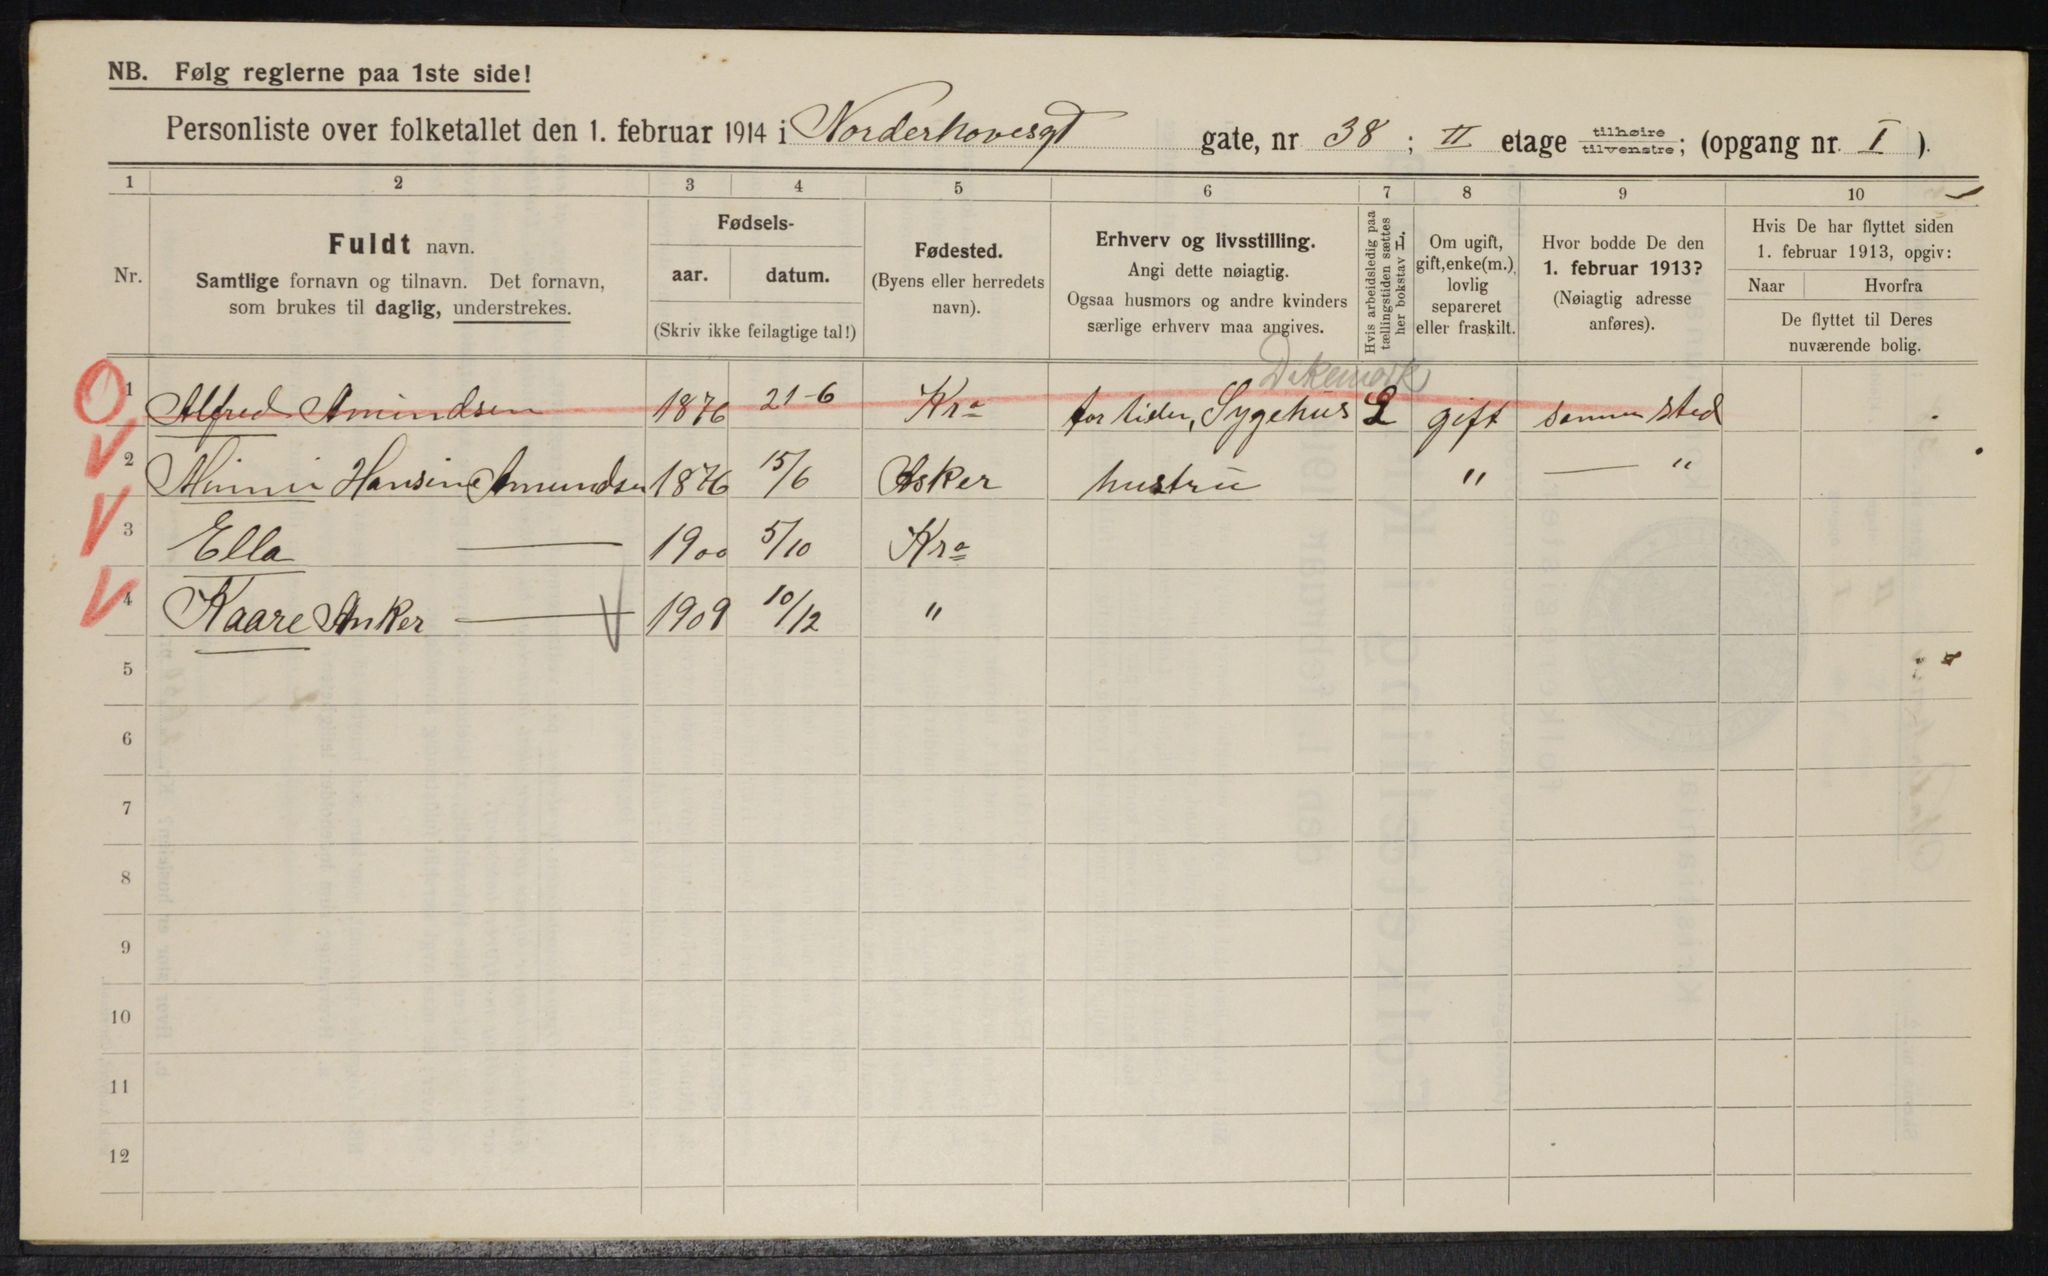 NB. Følg reglerne paa 1ste side!
Personliste over folketallet den 1. februar 1914 i Norderhovesgt gate, nr 38 ; II etage tilhøire/tilvenstre; (opgang nr. I ).
1 2 3 4 5 6 7 8 9 10
Nr.
Fuldt navn.
Samtlige fornavn og tilnavn. Det fornavn,
som brukes til daglig, understrekes.
Fødsels-
aar. datum.
(Skriv ikke feilagtige tal!)
Fødested.
(Byens eller herredets
navn).
Erhverv og livsstilling.
Angi dette nøiagtig.
Ogsaa husmors og andre kvinders
særlige erhverv maa angives.
Hvis arbeidsledig paa
tællingstiden sættes
her bokstav L.
Om ugift,
gift, enke(m.),
lovlig
separeret
eller fraskilt.
Hvor bodde De den
1. februar 1913?
(Nøiagtig adresse
anføres).
Hvis De har flyttet siden
1. februar 1913, opgiv:
Naar Hvorfra
De flyttet til Deres
nuværende bolig.
Dikemark
1 Alfred Amundsen 1876 21-6 Kra for tiden, Sygehus L gift samme sted
2 Minni Hansine Amundsen 1876 15/6 Asker hustru " — "
3 Ella — 1900 5/10 Kra
4 Kaare Anker — 1909 10/12 "
5
6
7
8
9
10
11
12